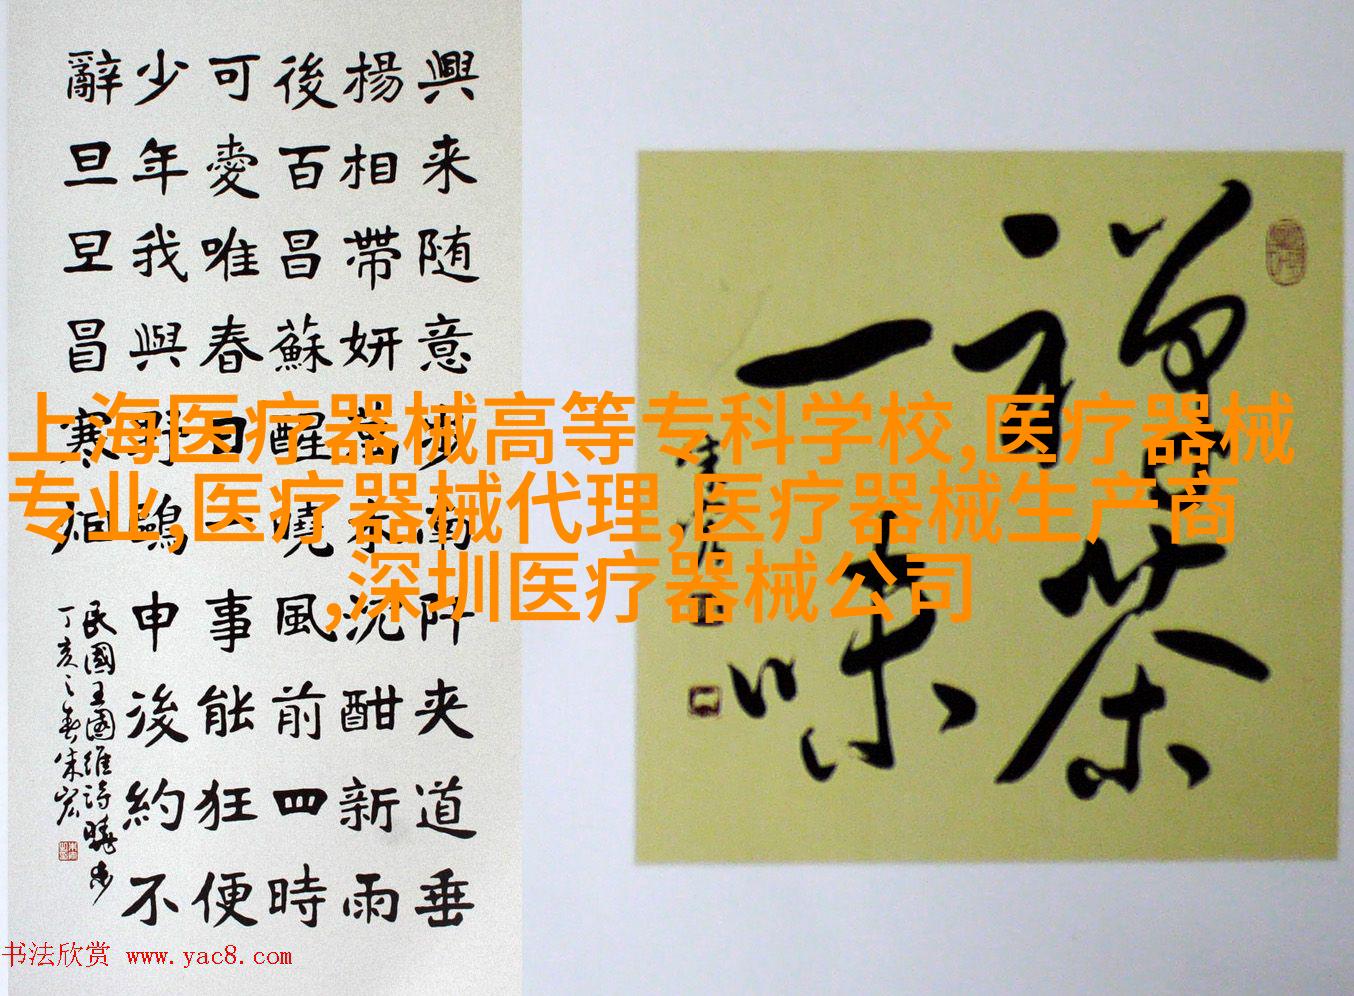 興来随意步南阡夹道垂
楊相帶妍萬木沉酣新雨
後百昌蘇醒曉風前四時
可愛唯春日一事能狂便
少年我與野鷗申後約不
辭旦旦冒寒烟
民國王國維詩曉步
丁亥之春朱宏
禅茶
一味
上海医疗器械高等专科学校,医疗器械
专业,医疗器械代理,医疗器械生产商
,深圳医疗器械公司
书法欣赏 www.yac8.com